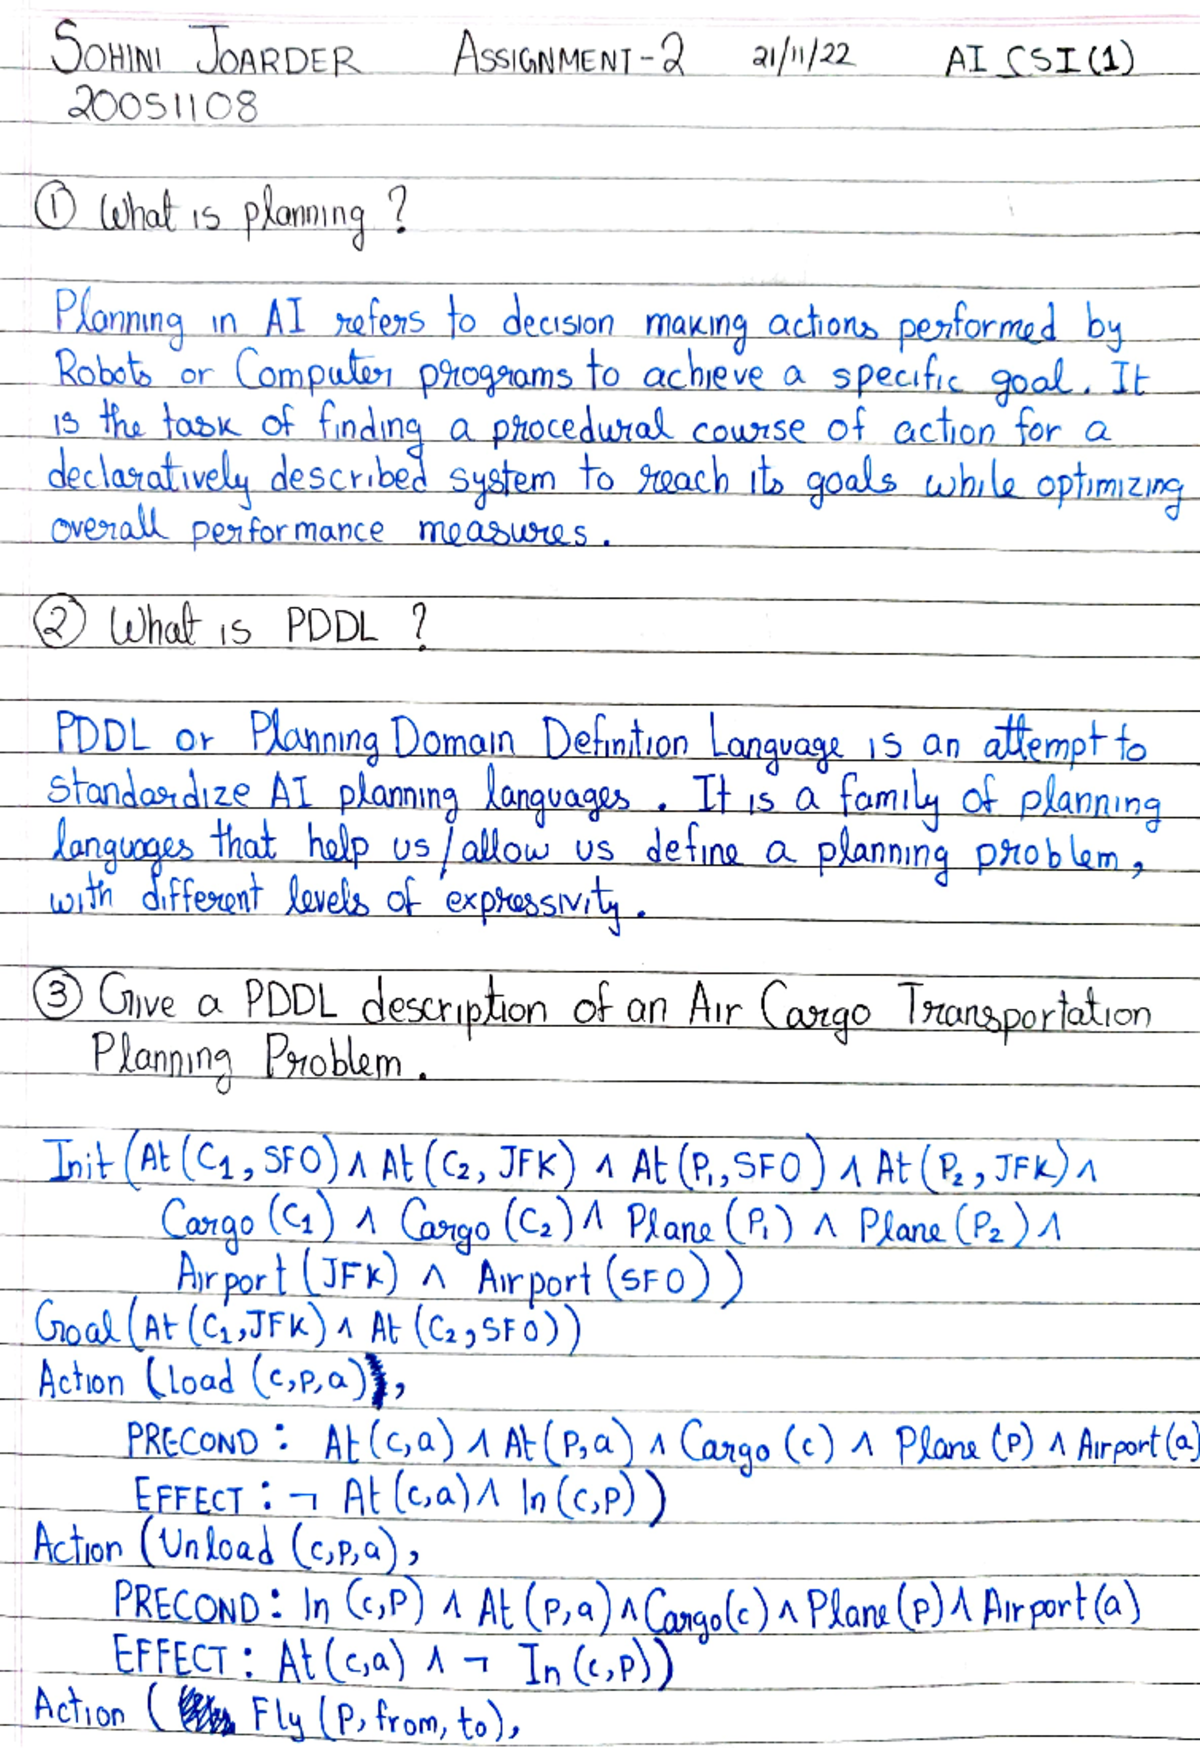 SOHINI JOARDER ASSIGNMENT-2 21/11/22 AI CSI(1)
20051108
① What is planning?
Planning in AI refers to decision making actions performed by
Robots or Computer programs to achieve a specific goal. It
is the task of finding a procedural course of action for a
declaratively described system to reach its goals while optimizing
overall performance measures.
② What is PDDL?
PDDL or Planning Domain Definition Language is an attempt to
standardize AI planning languages. It is a family of planning
languages that help us/allow us define a planning problem,
with different levels of expressivity.
③ Give a PDDL description of an Air Cargo Transportation
Planning Problem.
Init (At (C₁, SFO) ∧ At (C₂, JFK) ∧ At (P₁, SFO) ∧ At (P₂, JFK) ∧
Cargo (C₁) ∧ Cargo (C₂) ∧ Plane (P₁) ∧ Plane (P₂) ∧
Airport (JFK) ∧ Airport (SFO))
Goal (At (C₁, JFK) ∧ At (C₂, SFO))
Action (Load (c, p, a),
PRECOND: At (c, a) ∧ At (p, a) ∧ Cargo (c) ∧ Plane (p) ∧ Airport (a)
EFFECT: ¬ At (c, a) ∧ In (c, p))
Action (Unload (c, p, a),
PRECOND: In (c, p) ∧ At (p, a) ∧ Cargo (c) ∧ Plane (p) ∧ Airport (a)
EFFECT: At (c, a) ∧ ¬ In (c, p))
Action ( Fly (p, from, to),